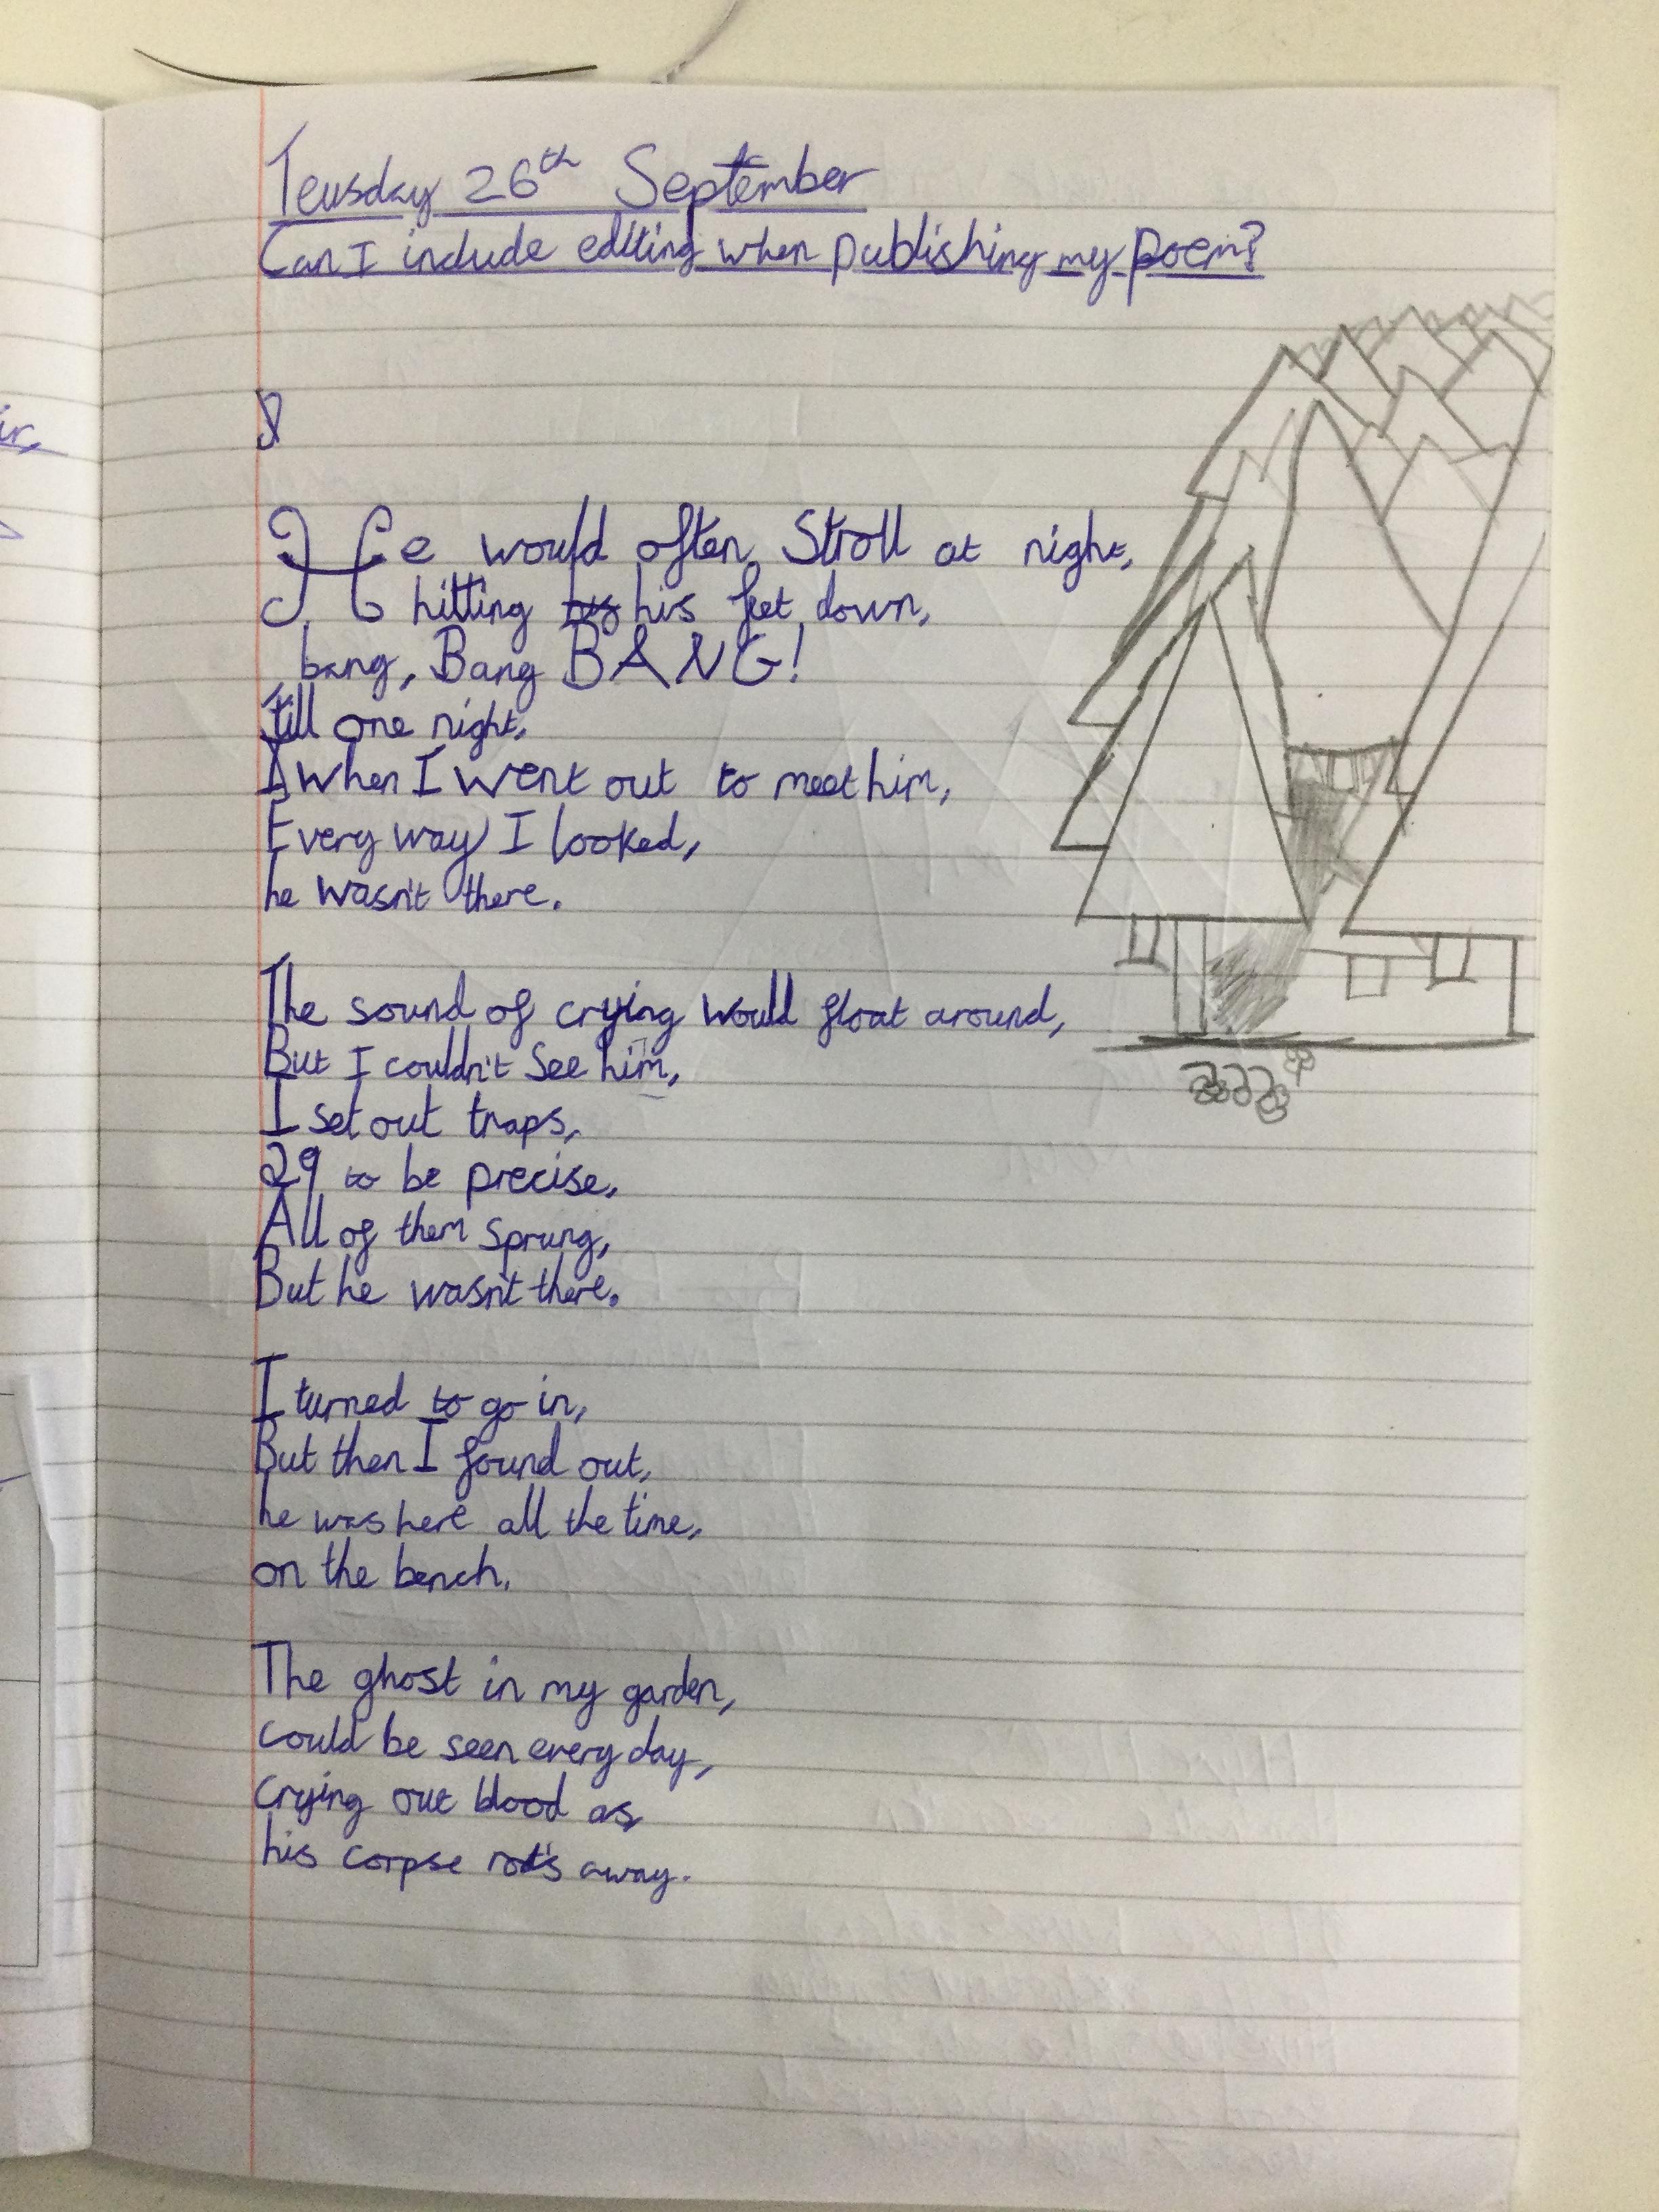 Teusday 26th September
Can I include editing when publishing my poem?
He would often Stroll at night,
hitting his his feet down,
bang, Bang BANG!
Till one night,
when I went out to meet him,
Every way I looked,
he wasn't there.
The sound of crying would float around,
But I couldn't See him,
I set out traps,
29 to be precise,
All of them sprung,
But he wasn't there.
I turned to go in,
But then I found out,
he was here all the time,
on the bench.
The ghost in my garden,
could be seen every day,
crying out blood as
his corpse rots away.